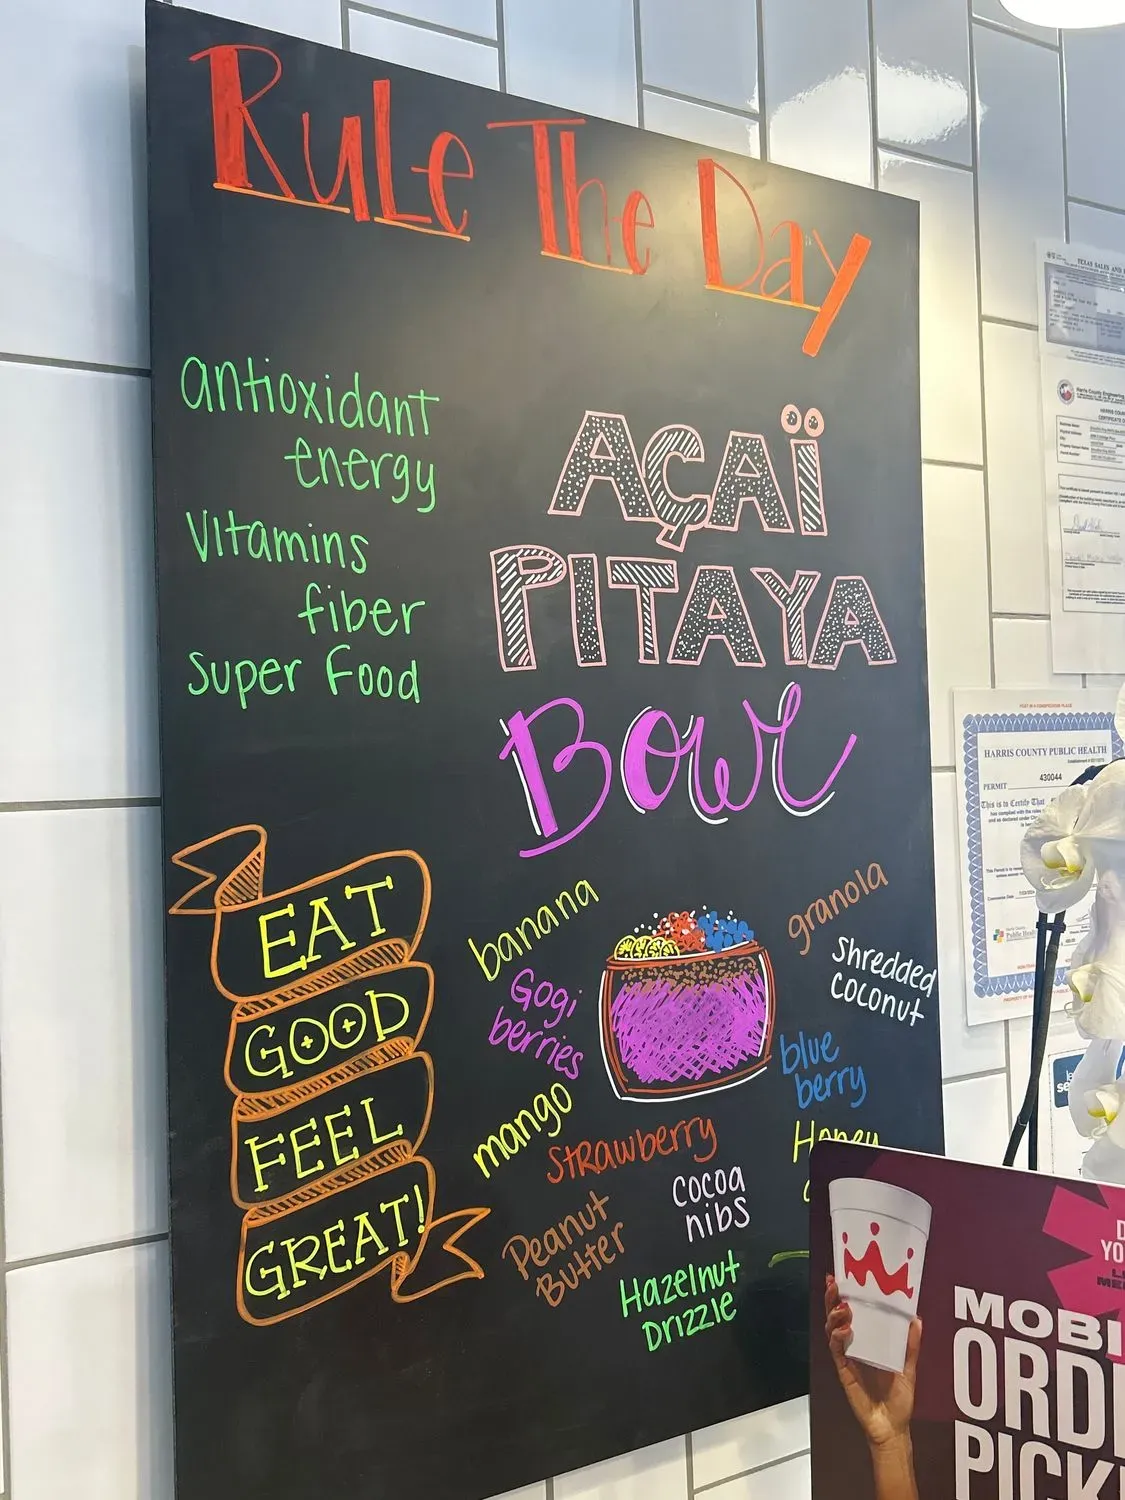 Rule The Day
antioxidant
energy
Vitamins
fiber
Super Food
AÇAÏ
PITAYA
Bowl
EAT
GOOD
FEEL
GREAT!
banana
Gogi
berries
mango
Strawberry
Peanut
Butter
Cocoa
nibs
Hazelnut
Drizzle
granola
Shredded
Coconut
blue
berry
Honey
HARRIS COUNTY PUBLIC HEALTH
PERMIT 430044
This is to Certify That
MOBI
ORD
PICK